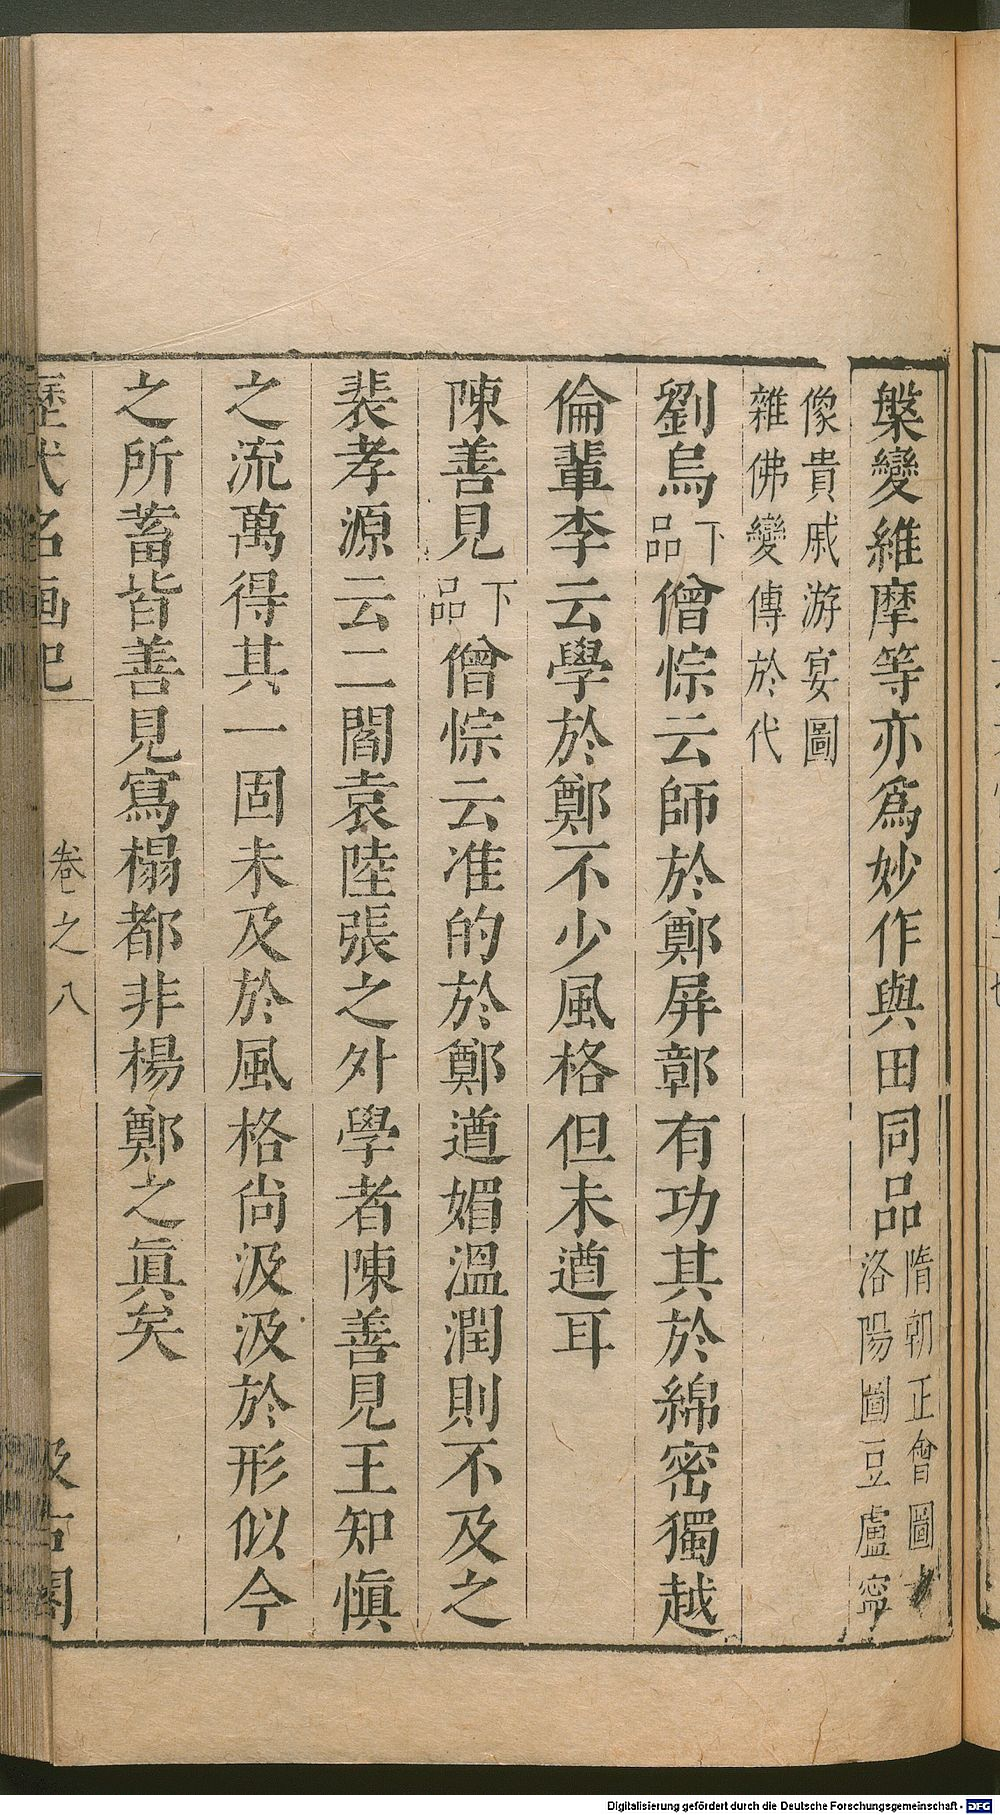 槃變維摩等亦爲妙作與田同品隋朝正會圖
洛陽圖豆盧寧
像貴戚游宴圖
雜佛變傳於代
劉烏下品僧悰云師於鄭屏彰有功其於綿密獨越
倫輩李云學於鄭不少風格但未遒耳
陳善見下品僧悰云准的於鄭遒媚溫潤則不及之
裴孝源云二閻袁陸張之外學者陳善見王知慎
之流萬得其一固未及於風格尚汲汲於形似今
之所蓄皆善見寫榻都非楊鄭之眞矣
歷代名画記 卷之八 汲古閣
Digitalisierung gefördert durch die Deutsche Forschungsgemeinschaft - DFG